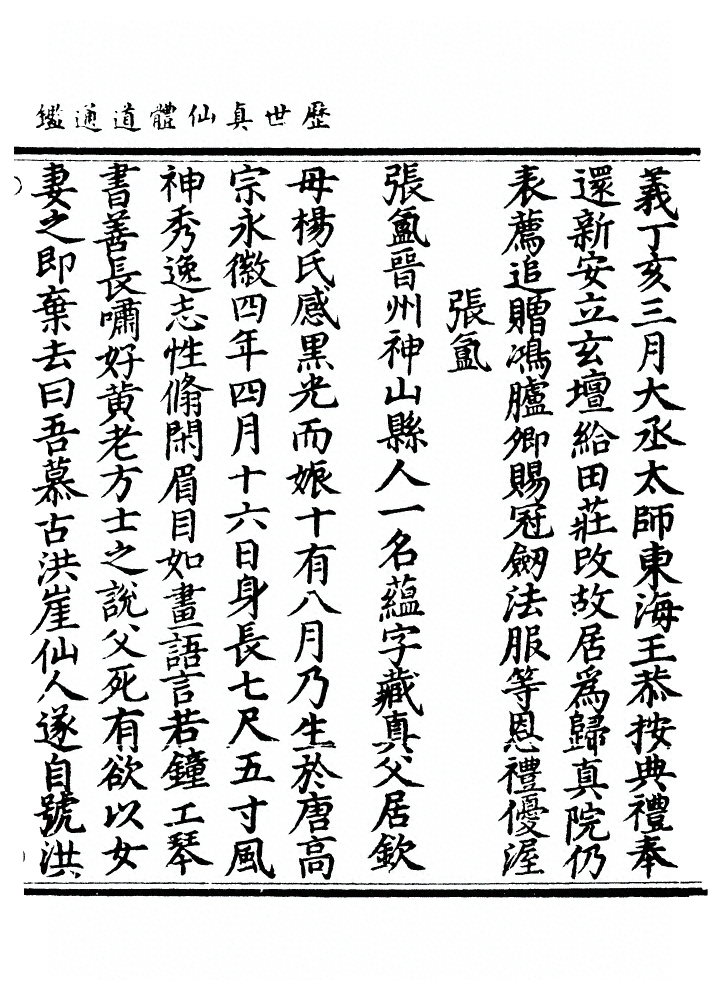 歷世真仙體道通鑑
義丁亥三月大丞太師東海王恭按典禮奉
還新安立玄壇給田莊改故居為歸真院仍
表薦追贈鴻臚卿賜冠劒法服等恩禮優渥
張氳
張氳晉州神山縣人一名蘊字藏真父居欽
母楊氏感黑光而娠十有八月乃生於唐高
宗永徽四年四月十六日身長七尺五寸風
神秀逸志性脩閑眉目如畫語言若鐘工琴
書善長嘯好黃老方士之說父死有欲以女
妻之即棄去曰吾慕古洪崖仙人遂自號洪